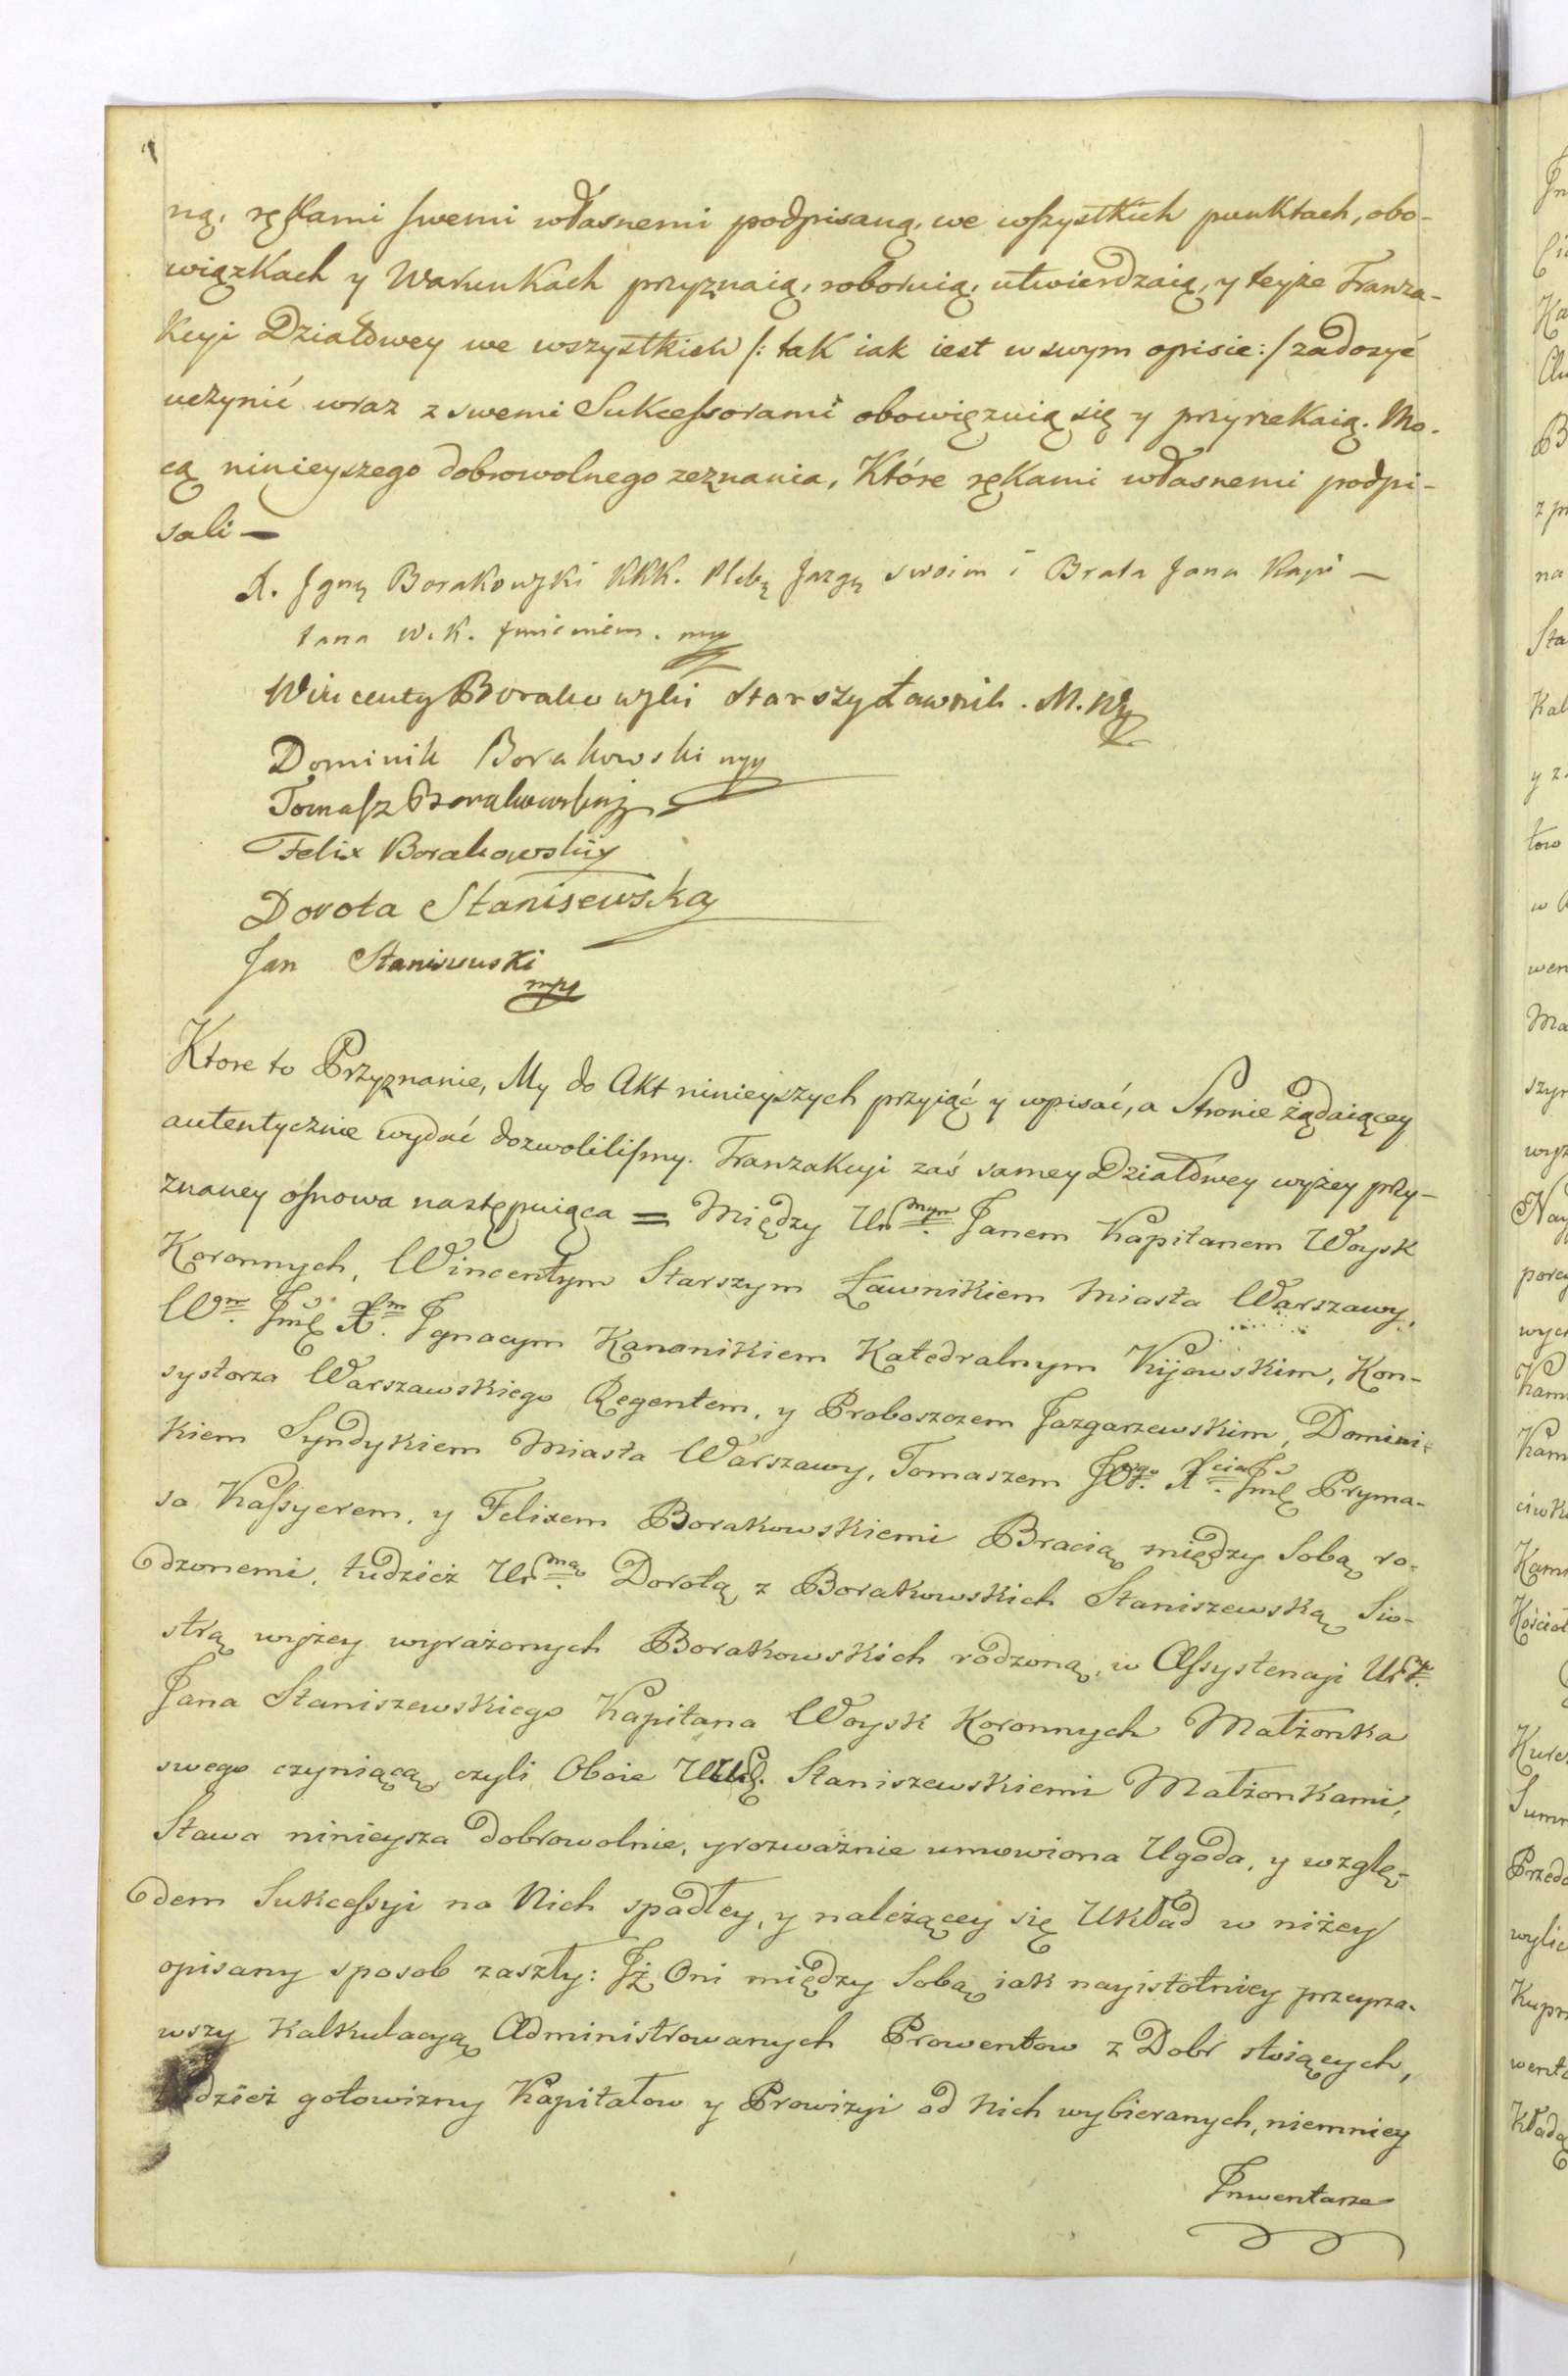 ną, rękami swemi własnemi podpisaną, we wszystkich punktach, obo-
wiązkach y Warunkach przyznaią, roboruią, utwierdzaią, y teyże Tranza-
kcyi Działowey we wszystkich /: tak iak iest w swym opisie :/ zadosyć
uczynić wraz z swemi Sukcessorami obowięzuią się y przyrzekaią. Mo-
cą ninieyszego dobrowolnego zeznania, Które rękami własnemi podpi-
sali —
X. Jgnę Borakowski KKK. Plebę Jazgę swoim i Brata Jana Kapi-
tana W. K. Jmieniem. mpp
Wincenty Borakowski Starszy Ławnik. M. W.
Dominik Borakowski mpp
Tomasz Borakowski
Felix Borakowski
Dorota Stanisewska
Jan Staniswski
mpp
Ktore to Przyznanie, My do Akt ninieyszych przyiąć y wpisać, a Stronie żądaiącey
autentycznie wydać dozwolilismy. Tranzakcyi zaś samey Działowey wyżey przy-
znaney osnowa następuiąca = Między Ur.mym Janem Kapitanem Woysk
Koronnych, Wincentym Starszym Ławnikiem Miasta Warszawy,
W.m Jmć X.m Jgnacym Kanonikiem Katedralnym Kijowskim, Kon-
systorza Warszawskiego Regentem, y Proboszczem Jazgarzewskim, Domini-
kiem Syndykiem Miasta Warszawy, Tomaszem JO.go X.cia Jmć Pryma-
sa Kassyerem, y Felixem Borakowskiemi Bracią między Sobą ro-
dzonemi, tudzież Ur.mą Dorotą z Borakowskich Staniszewską Sio-
strą wyżey wyrażonych Borakowskich rodzoną, w Assystencyi Ur.
Jana Staniszewskiego Kapitana Woysk Koronnych Małżonka
swego czyniącą, czyli Oboie Staniszewskiemi Małżonkami,
Stawa ninieysza dobrowolnie, y rozważnie umowiona Ugoda, y wzglę-
dem Sukcessyi na Nich spadłey, y należącey się Układ w niżey
opisany sposob zaszły: Jż Oni między Sobą iak nayistotniey przeyrza-
wszy Kalkulacyą Administrowanych Prowentow z Dobr stoiących,
tudzież gotowizny Kapitałow y Prowizyi od Nich wybieranych, niemniey
Jnwentarze